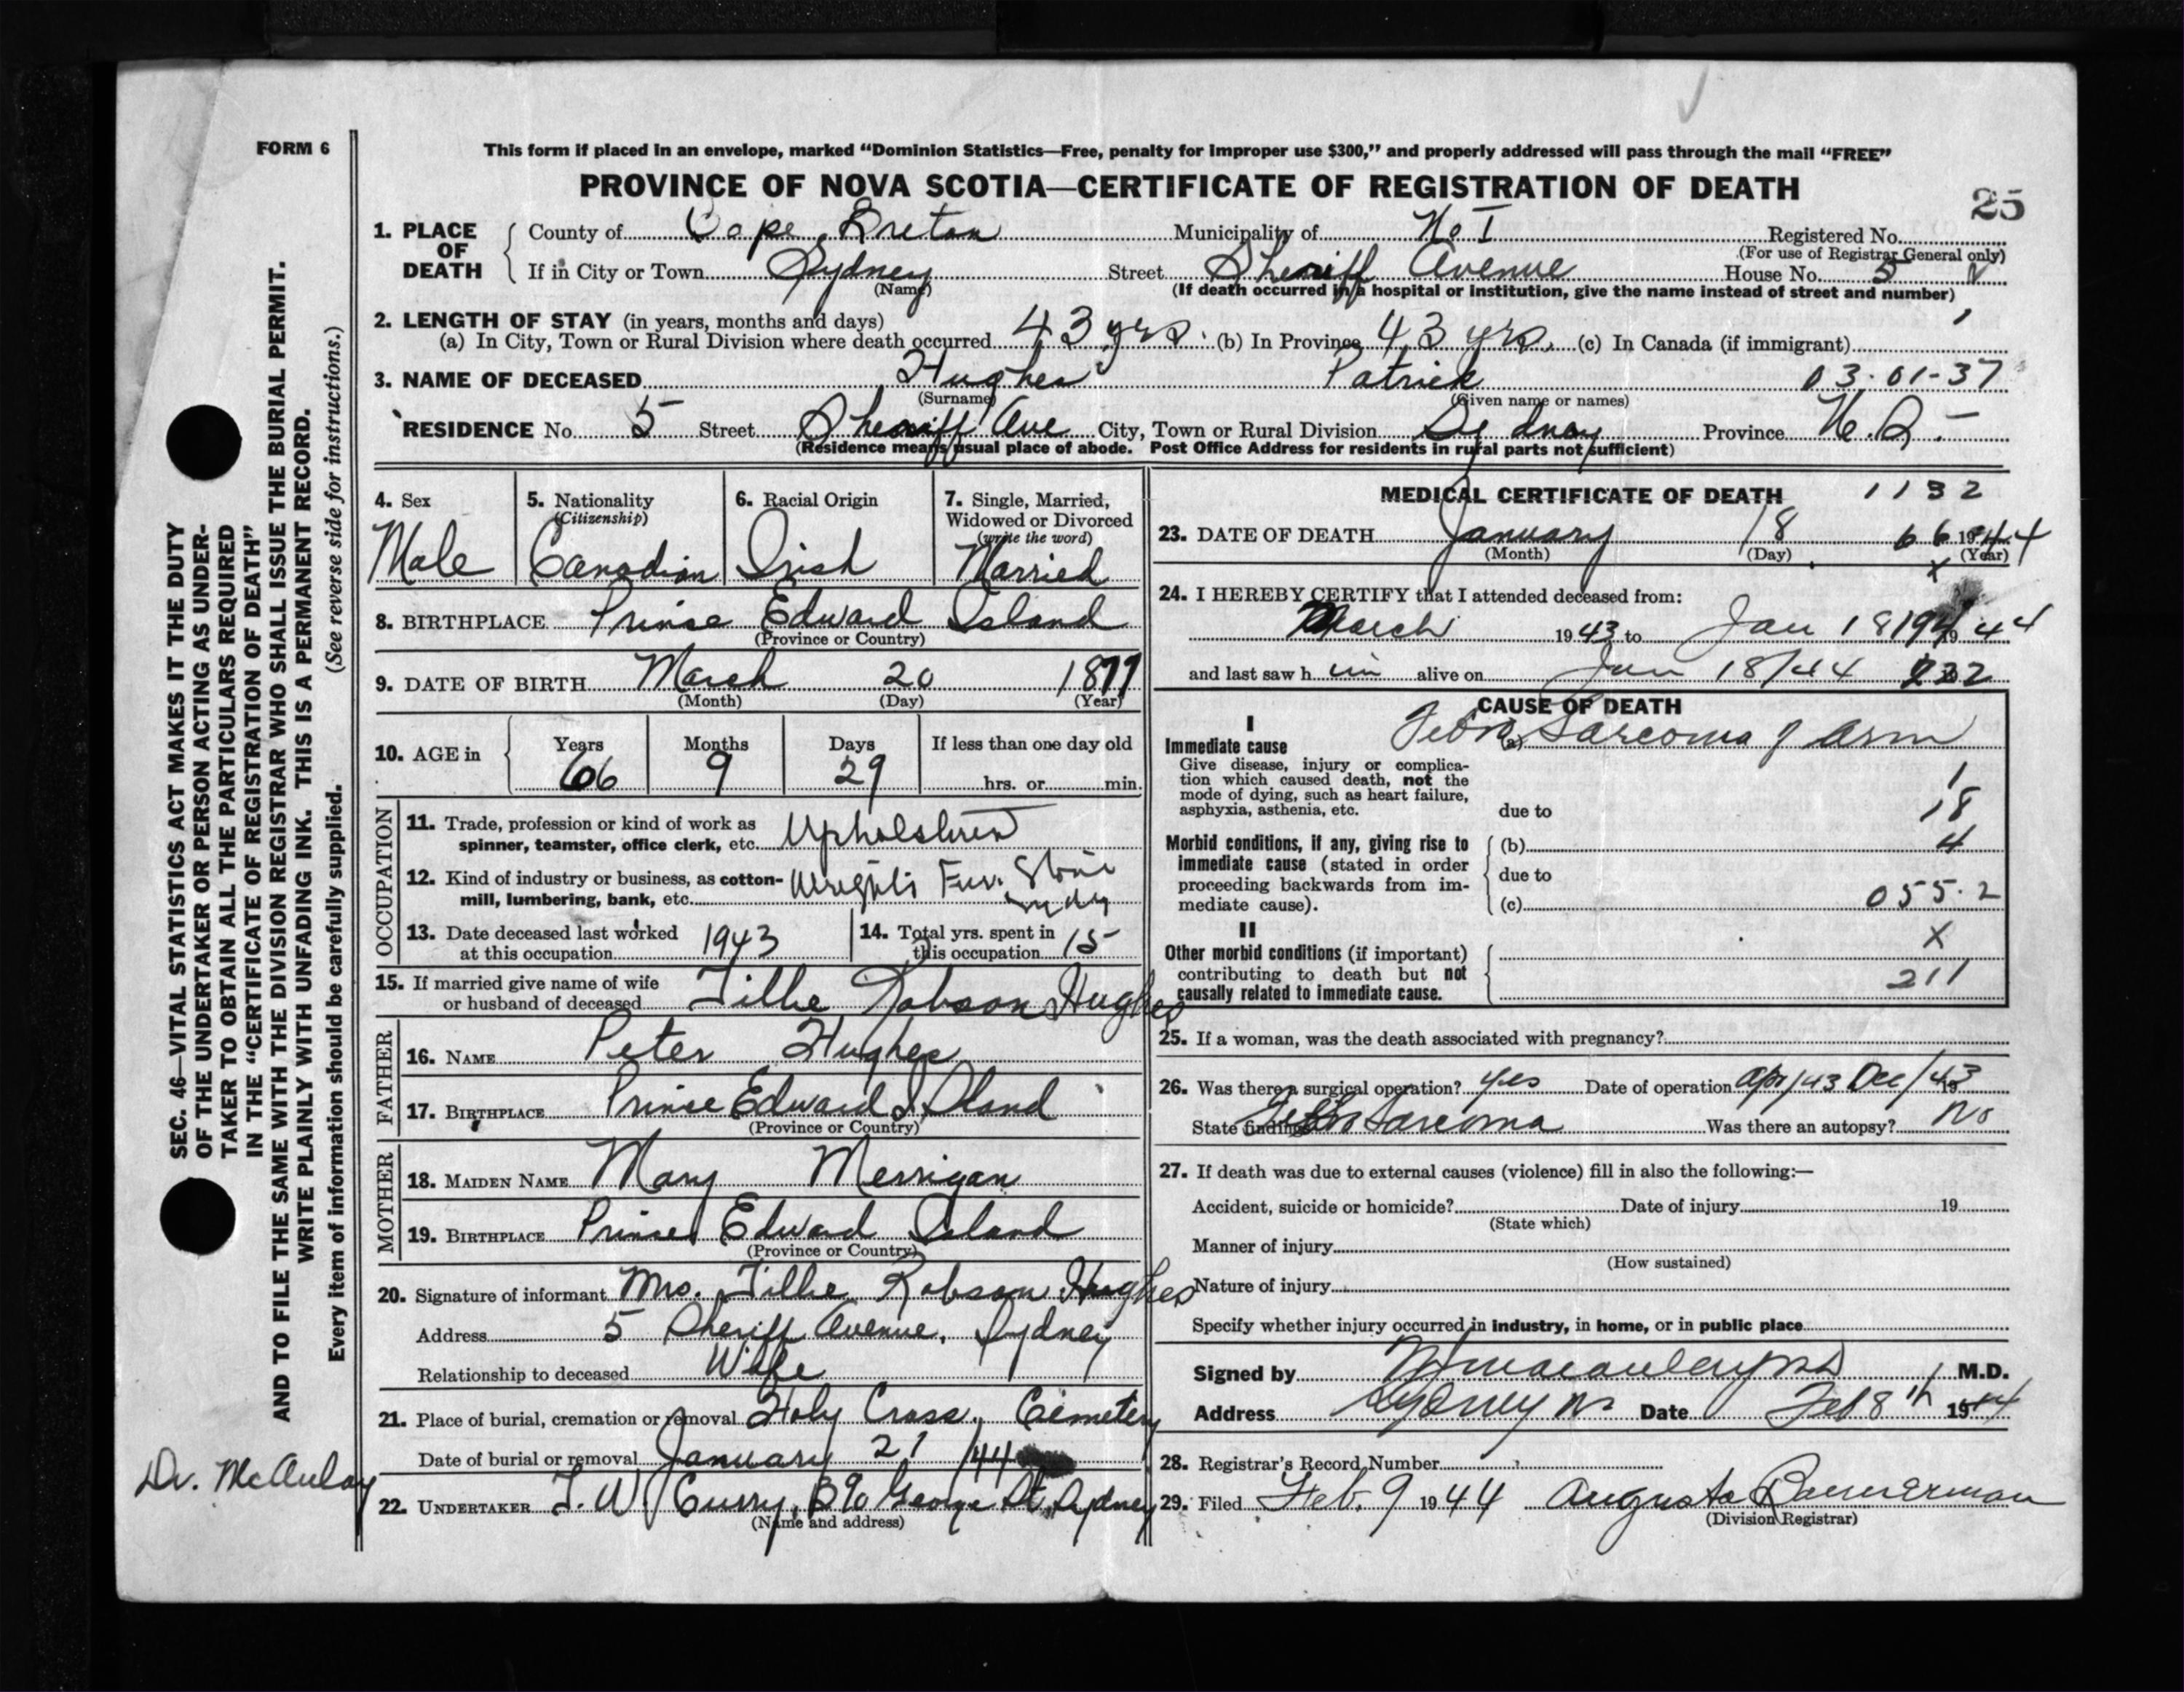 FORM 6
This form if placed in an envelope, marked “Dominion Statistics—Free, penalty for improper use $300,” and properly addressed will pass through the mail “FREE”
PROVINCE OF NOVA SCOTIA—CERTIFICATE OF REGISTRATION OF DEATH
25
1. PLACE OF DEATH
County of Cape Breton Municipality of No I Registered No.
(For use of Registrar General only)
If in City or Town Sydney Street Sheriff Avenue House No. 5
(Name) (If death occurred in a hospital or institution, give the name instead of street and number)
2. LENGTH OF STAY (in years, months and days)
(a) In City, Town or Rural Division where death occurred 43 yrs. (b) In Province 43 yrs. (c) In Canada (if immigrant)
3. NAME OF DECEASED Hughes Patrick 03-01-37
(Surname) (Given name or names)
RESIDENCE No. 5 Street Sheriff Ave City, Town or Rural Division Sydney Province N.S.
(Residence means usual place of abode. Post Office Address for residents in rural parts not sufficient)
4. Sex Male
5. Nationality (Citizenship) Canadian
6. Racial Origin Irish
7. Single, Married, Widowed or Divorced (write the word) Married
8. BIRTHPLACE Prince Edward Island
(Province or Country)
9. DATE OF BIRTH March 20 1877
(Month) (Day) (Year)
10. AGE in Years 66 Months 9 Days 29 If less than one day old hrs. or min.
OCCUPATION
11. Trade, profession or kind of work as
spinner, teamster, office clerk, etc. Upholsterer
12. Kind of industry or business, as cotton-
mill, lumbering, bank, etc. Wright's Fur. Store
Sydney
13. Date deceased last worked
at this occupation 1943
14. Total yrs. spent in
this occupation 15
15. If married give name of wife
or husband of deceased Tillie Robson Hughes
FATHER
16. NAME Peter Hughes
17. BIRTHPLACE Prince Edward Island
(Province or Country)
MOTHER
18. MAIDEN NAME Mary Merrigan
19. BIRTHPLACE Prince Edward Island
(Province or Country)
20. Signature of informant Mrs. Tillie Robson Hughes
Address 5 Sheriff Avenue, Sydney
Relationship to deceased Wife
21. Place of burial, cremation or removal Holy Cross, Cemetery
Date of burial or removal January 21/44
22. UNDERTAKER T. W. Curry, 390 George St, Sydney
(Name and address)
MEDICAL CERTIFICATE OF DEATH 1132
23. DATE OF DEATH January 18 66 1944
(Month) (Day) (Year)
x
24. I HEREBY CERTIFY that I attended deceased from:
March 1943 to Jan 18 19 44
and last saw him alive on Jan 18/44 232
CAUSE OF DEATH
I
Immediate cause (a) Fibro Sarcoma of arm
Give disease, injury or complica-
tion which caused death, not the
mode of dying, such as heart failure,
asphyxia, asthenia, etc.
1
due to 18
Morbid conditions, if any, giving rise to
immediate cause (stated in order
proceeding backwards from im-
mediate cause).
(b) 4
due to
(c) 055.2
II
Other morbid conditions (if important)
contributing to death but not
causally related to immediate cause.
X
211
25. If a woman, was the death associated with pregnancy?
26. Was there a surgical operation? yes Date of operation Apr/43 Dec/43
State findings Fibro Sarcoma Was there an autopsy? No
27. If death was due to external causes (violence) fill in also the following:—
Accident, suicide or homicide? Date of injury 19
(State which)
Manner of injury
(How sustained)
Nature of injury
Specify whether injury occurred in industry, in home, or in public place
Signed by Macaulay MD M.D.
Address Sydney NS Date Feb 8th 1944
28. Registrar's Record Number
29. Filed Feb. 9 1944 Augusta Bannerman
(Division Registrar)
SEC. 46—VITAL STATISTICS ACT MAKES IT THE DUTY
OF THE UNDERTAKER OR PERSON ACTING AS UNDER-
TAKER TO OBTAIN ALL THE PARTICULARS REQUIRED
IN THE “CERTIFICATE OF REGISTRATION OF DEATH”
AND TO FILE THE SAME WITH THE DIVISION REGISTRAR WHO SHALL ISSUE THE BURIAL PERMIT.
WRITE PLAINLY WITH UNFADING INK. THIS IS A PERMANENT RECORD.
Every item of information should be carefully supplied. (See reverse side for instructions.)
Dr. McAulay